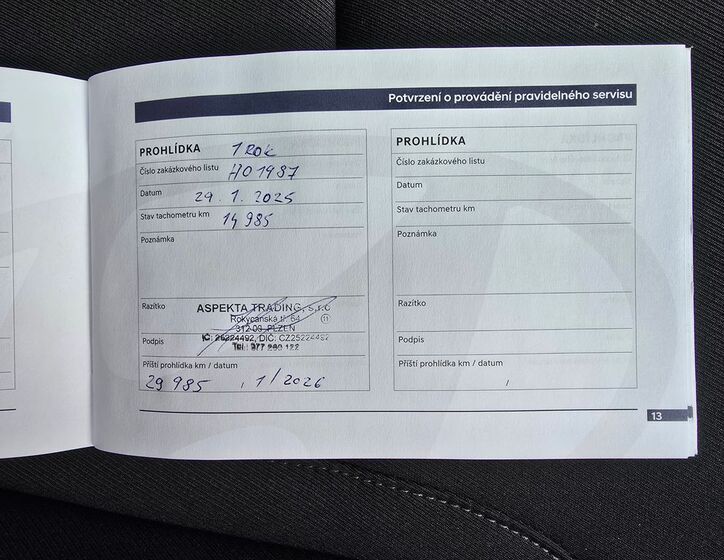 Potvrzení o provádění pravidelného servisu
PROHLÍDKA 1 ROK
Číslo zakázkového listu HO1987
Datum 29. 1. 2025
Stav tachometru km 14 985
Poznámka
Razítko ASPEKTA TRADING, s.r.o
Rokycanská tř. 64 11
312 00, PLZEŇ
Podpis IČ: 25224492, DIČ: CZ25224492
Tel.: 377 260 122
Příští prohlídka km / datum
29 985 , 1/2026
PROHLÍDKA
Číslo zakázkového listu
Datum
Stav tachometru km
Poznámka
Razítko
Podpis
Příští prohlídka km / datum
/
13